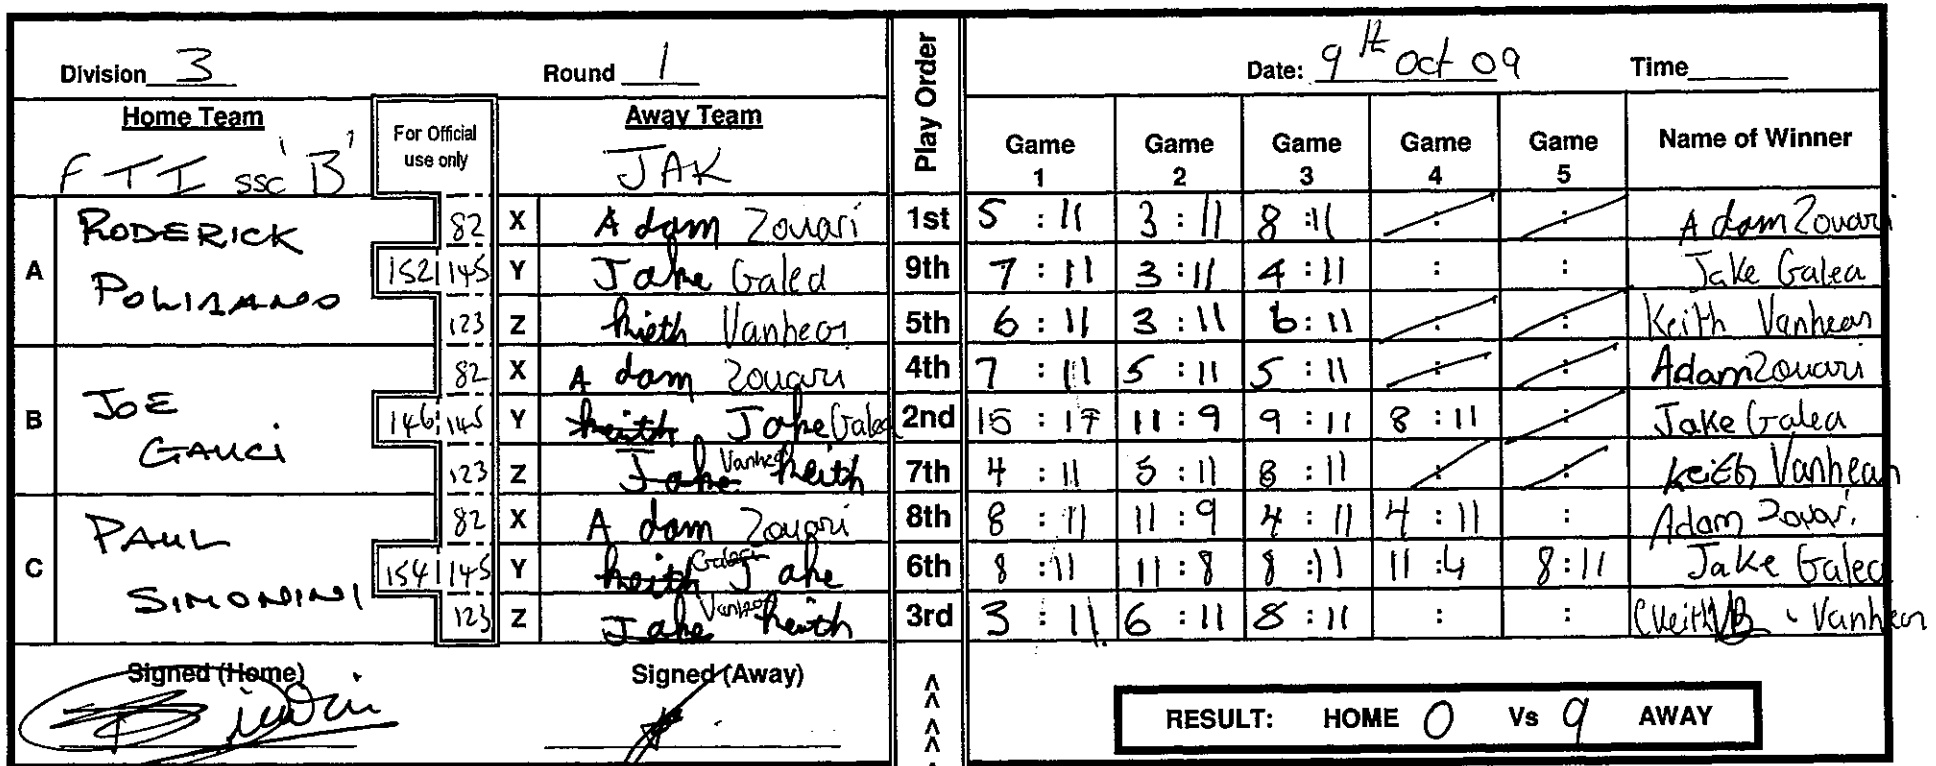 Division 3 Round 1 Play Order Date: 9th Oct 09 Time
Home Team For Official use only Away Team Game 1 Game 2 Game 3 Game 4 Game 5 Name of Winner
FTI SSC 'B' JAK
A RODERICK POLISANO 152
82 X Adam Zouari 1st 5 : 11 3 : 11 8 : 11 : : Adam Zouari
145 Y Jake Galea 9th 7 : 11 3 : 11 4 : 11 : : Jake Galea
123 Z Kieth Vanhear 5th 6 : 11 3 : 11 6 : 11 : : Keith Vanhear
B JOE GAUCI 146
82 X Adam Zouari 4th 7 : 11 5 : 11 5 : 11 : : Adam Zouari
145 Y Keith Jake Galea 2nd 15 : 17 11 : 9 9 : 11 8 : 11 : Jake Galea
123 Z Jake Vanhear Keith 7th 4 : 11 5 : 11 8 : 11 : : Keith Vanhear
C PAUL SIMONINI 154
82 X Adam Zouari 8th 8 : 11 11 : 9 4 : 11 4 : 11 : Adam Zouari
145 Y Keith Galea Jake 6th 8 : 11 11 : 8 8 : 11 11 : 4 8 : 11 Jake Galea
123 Z Jake Keith 3rd 3 : 11 6 : 11 8 : 11 : : Keith Vanhear
Signed (Home) Signed (Away)
RESULT: HOME 0 Vs 9 AWAY